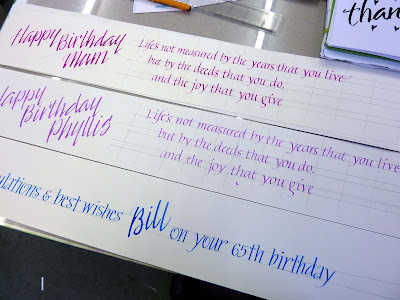 than
Happy Birthday
Mam
Life's not measured by the years that you live
but by the deeds that you do,
and the joy that you give
Happy
Birthday
Phyllis
Life's not measured by the years that you live
but by the deeds that you do,
and the joy that you give
ulations & best wishes Bill on your 65th birthday